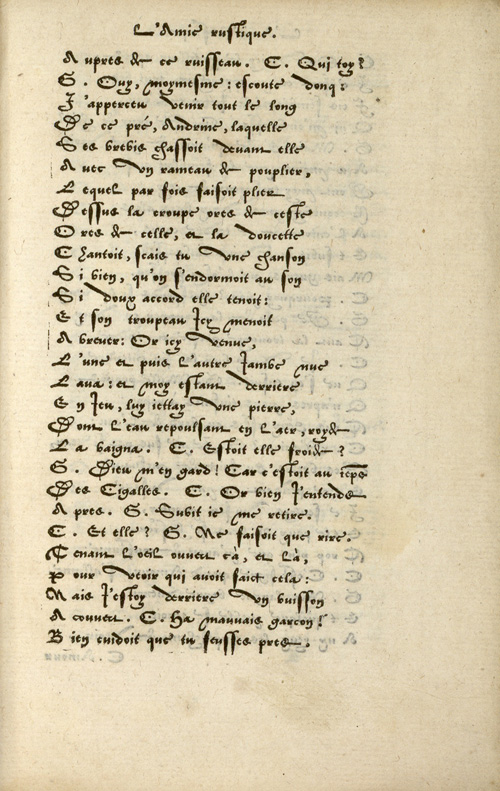 L'Amie rustique.
A upres de ce ruisseau. C. Qui toy?
S. Ouy, moymesme: escoute donq:
J'apperceu venir tout le long
De ce pré, Andrine, laquelle
S es brebis chassoit devant elle
A vec vn rameau de pouplier,
L equel par fois faisoit plier
D essus la croupe ores de ceste
O res de celle, et la doucette
C hantoit, scais tu vne chanson
S i bien, qu'on s'endormoit au son
S i doux accord elle tenoit:
E t son troupeau Icy menoit
A breuer: Or icy venue,
L'vne et puis l'autre Iambe nue
L aua: et moy estant derriere
E n Jeu, luy iettay vne pierre,
D ont l'eau repoulsant en l'aer, royde
L a baigna. C. Estoit elle froide?
S. Dieu m'en gard! Car c'estoit au tēps
D es Cigalles. C. Or bien J'entends
A pres. S. Subit ie me retire.
C. Et elle? S. Ne faisoit que rire.
T enant l'oeil ouvert çà, et là,
P our veoir qui auoit faict cela:
M ais J'estoy derriere vn buisson
A couuert. C. Ha mauuais garcon!
B ien cuidoit que tu feusses pres.